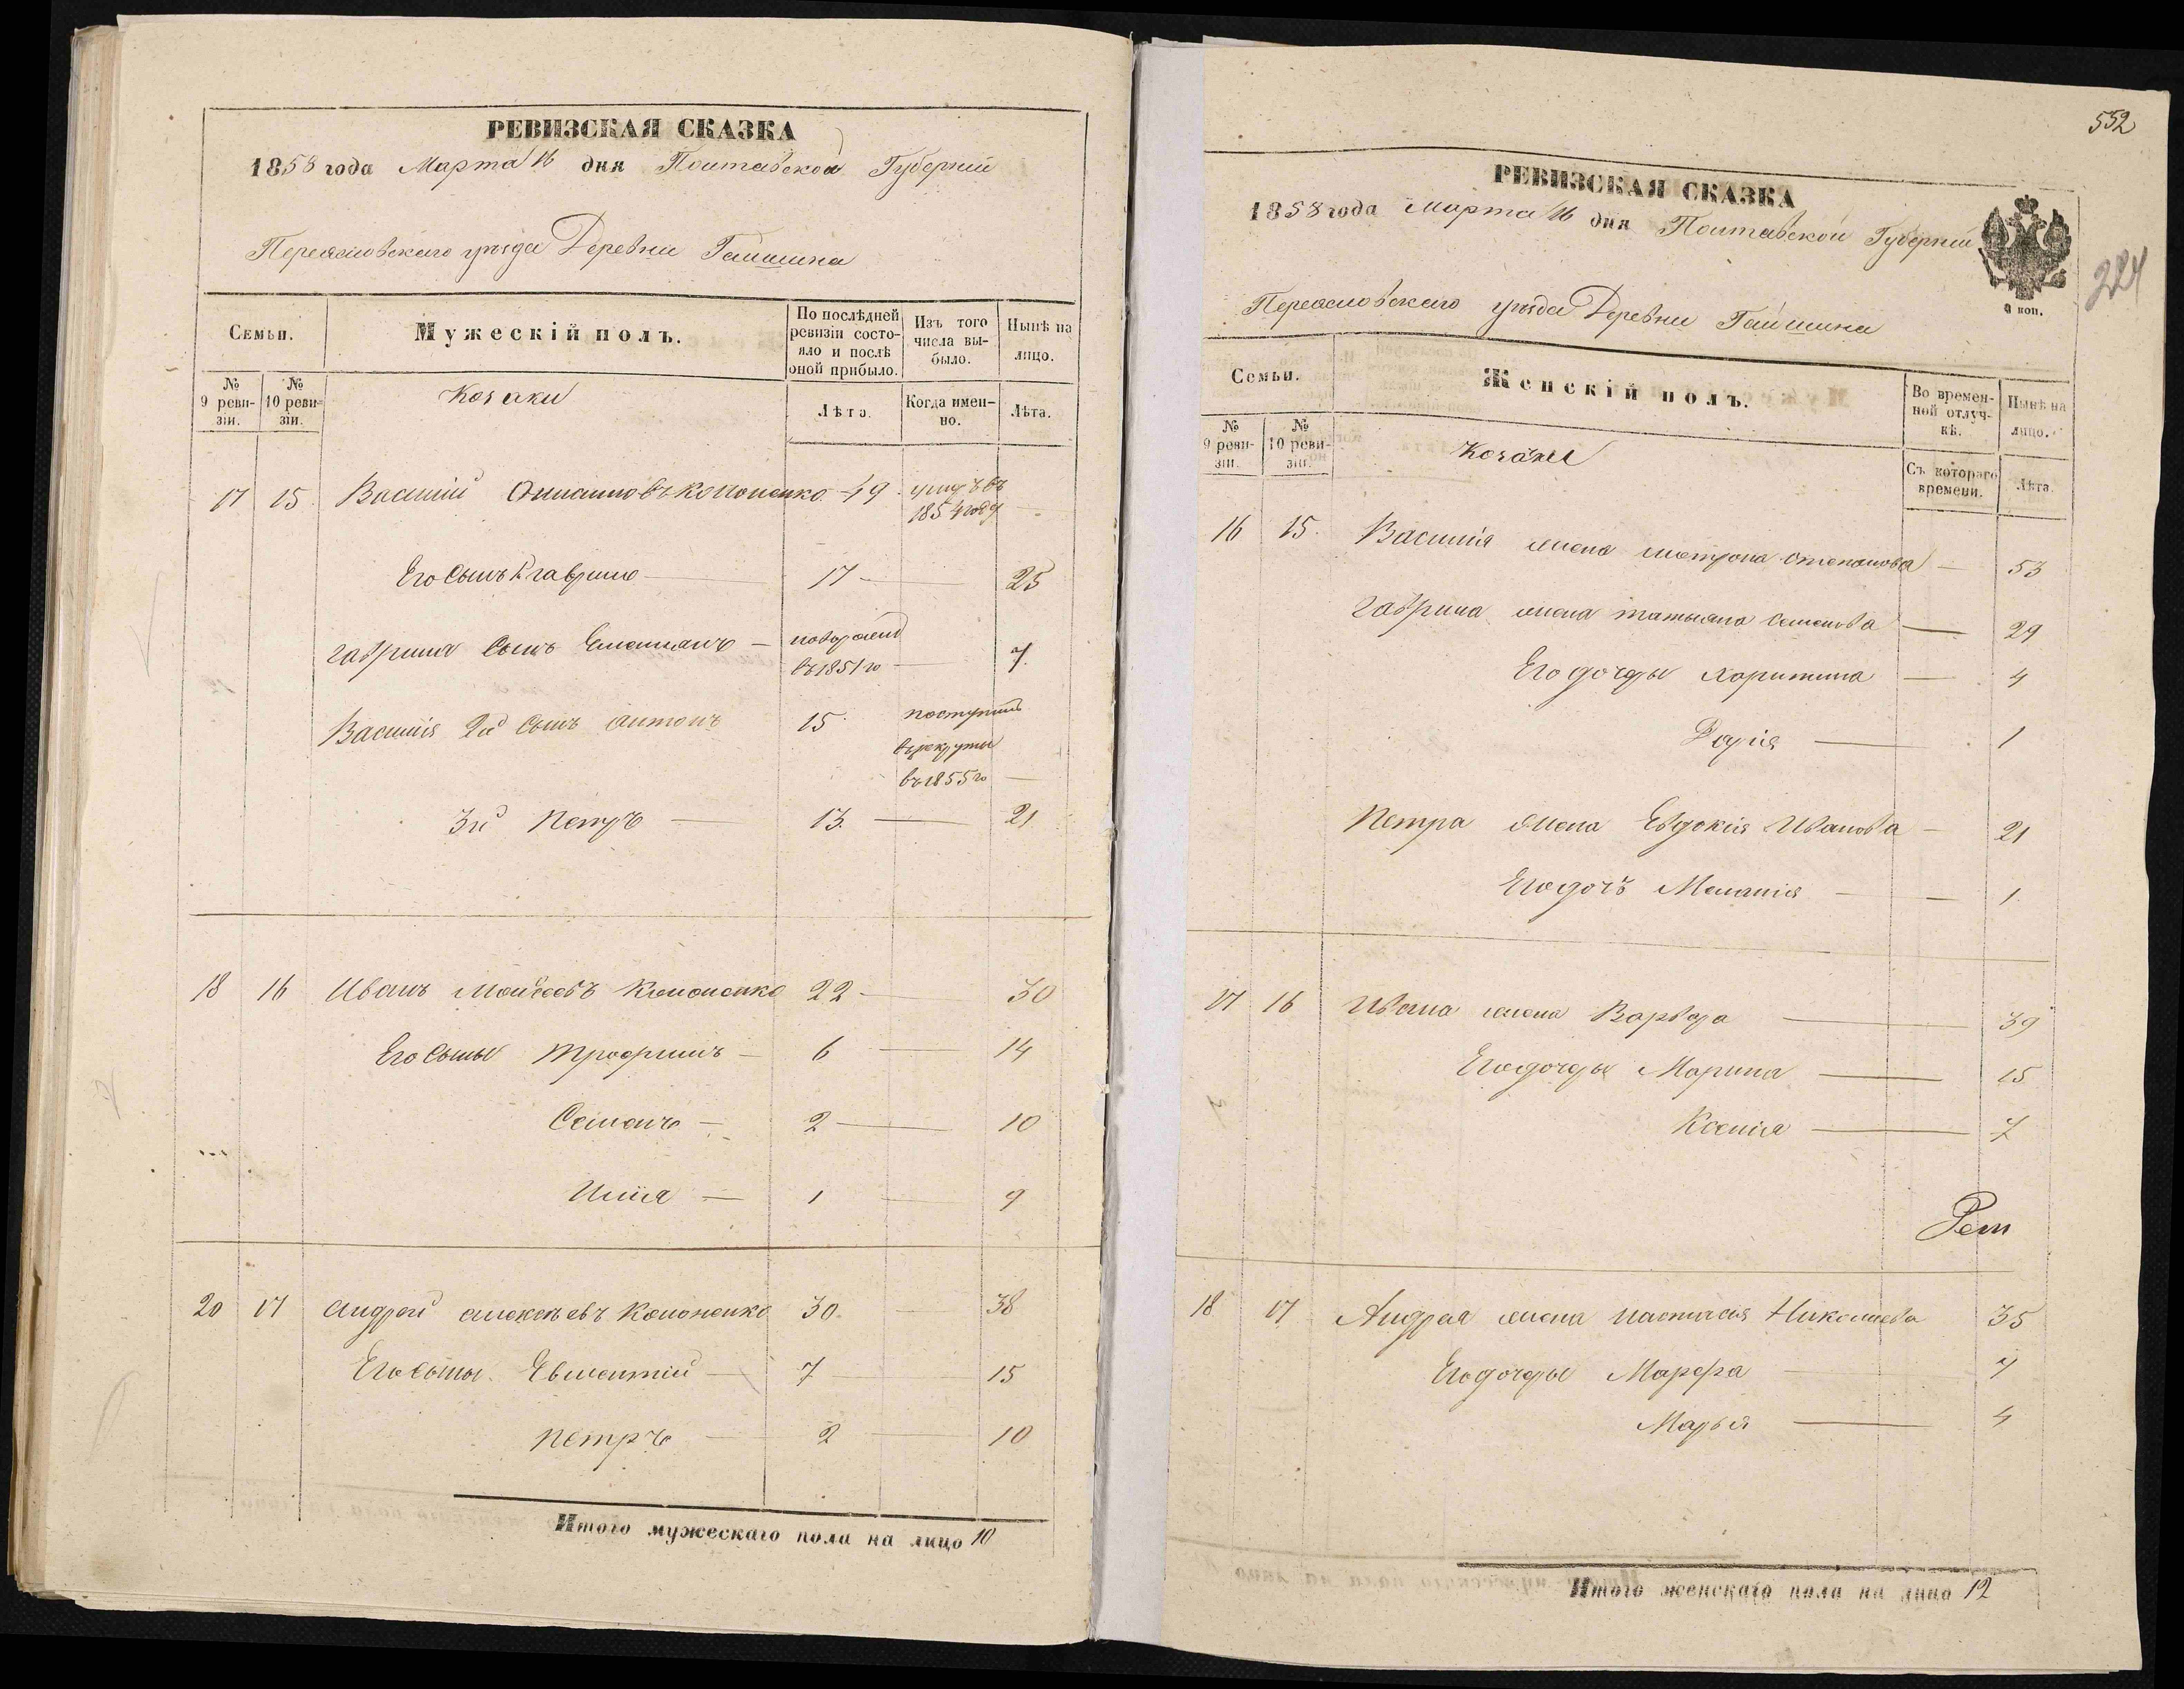 РЕВИЗСКАЯ СКАЗКА
1858 года Марта 16 дня Полтавской Губерніи
Переясловскаго уѣзда Деревни Гайшина
Семьи.
Мужескій полъ.
По послѣдней ревизіи состояло и послѣ оной прибыло.
Изъ того числа выбыло.
Нынѣ на лицо.
№ 9 ревизіи.
№ 10 ревизіи.
Козаки
Лѣта.
Когда именно.
Лѣта.
17 15. Василій Кононенко 49
1854 году
Его Сынъ Гаврило 17 25
Гаврила Сынъ Емельянъ
въ 1851 го 7.
Василія 2й Сынъ Антонъ 15 поступилъ
въ рекруты
въ 1855 го
3й Петръ 13. 21
18 16 Иванъ Моисеевъ Кононенко 22 30
Его Сыны Трофимъ 6 14
Семенъ 2 10
Илія 1 9
20 17 Андрей Алексѣевъ Кононенко 30. 38
Его Сыны Евментій 7 15
Петръ 2 10
Итого мужескаго пола на лицо 10
552
224
РЕВИЗСКАЯ СКАЗКА
1858 года Марта 16 дня Полтавской Губерніи
коп.
Переясловскаго уѣзда Деревни Гайшина
Семьи.
Женскій полъ.
Во временной отлучкѣ.
Нынѣ на лицо.
№ 9 ревизіи.
№ 10 ревизіи.
Козачки
Съ котораго времени.
Лѣта.
16 15. Василія жена Матрона Степанова 53
Гаврила жена Татьяна Семенова 29
Его дочеры Харитина 4
Дарія 1
Петра жена Евдокія Иванова 21
Его дочъ Меланія 1.
17 16 Ивана жена Варвара 39
Его дочеры Марина 15
Ксенія 7
18 17 Андрея жена Настасья Николаева 35
Его дочеры Марфа 7
Марья 4
Итого женскаго пола на лицо 12